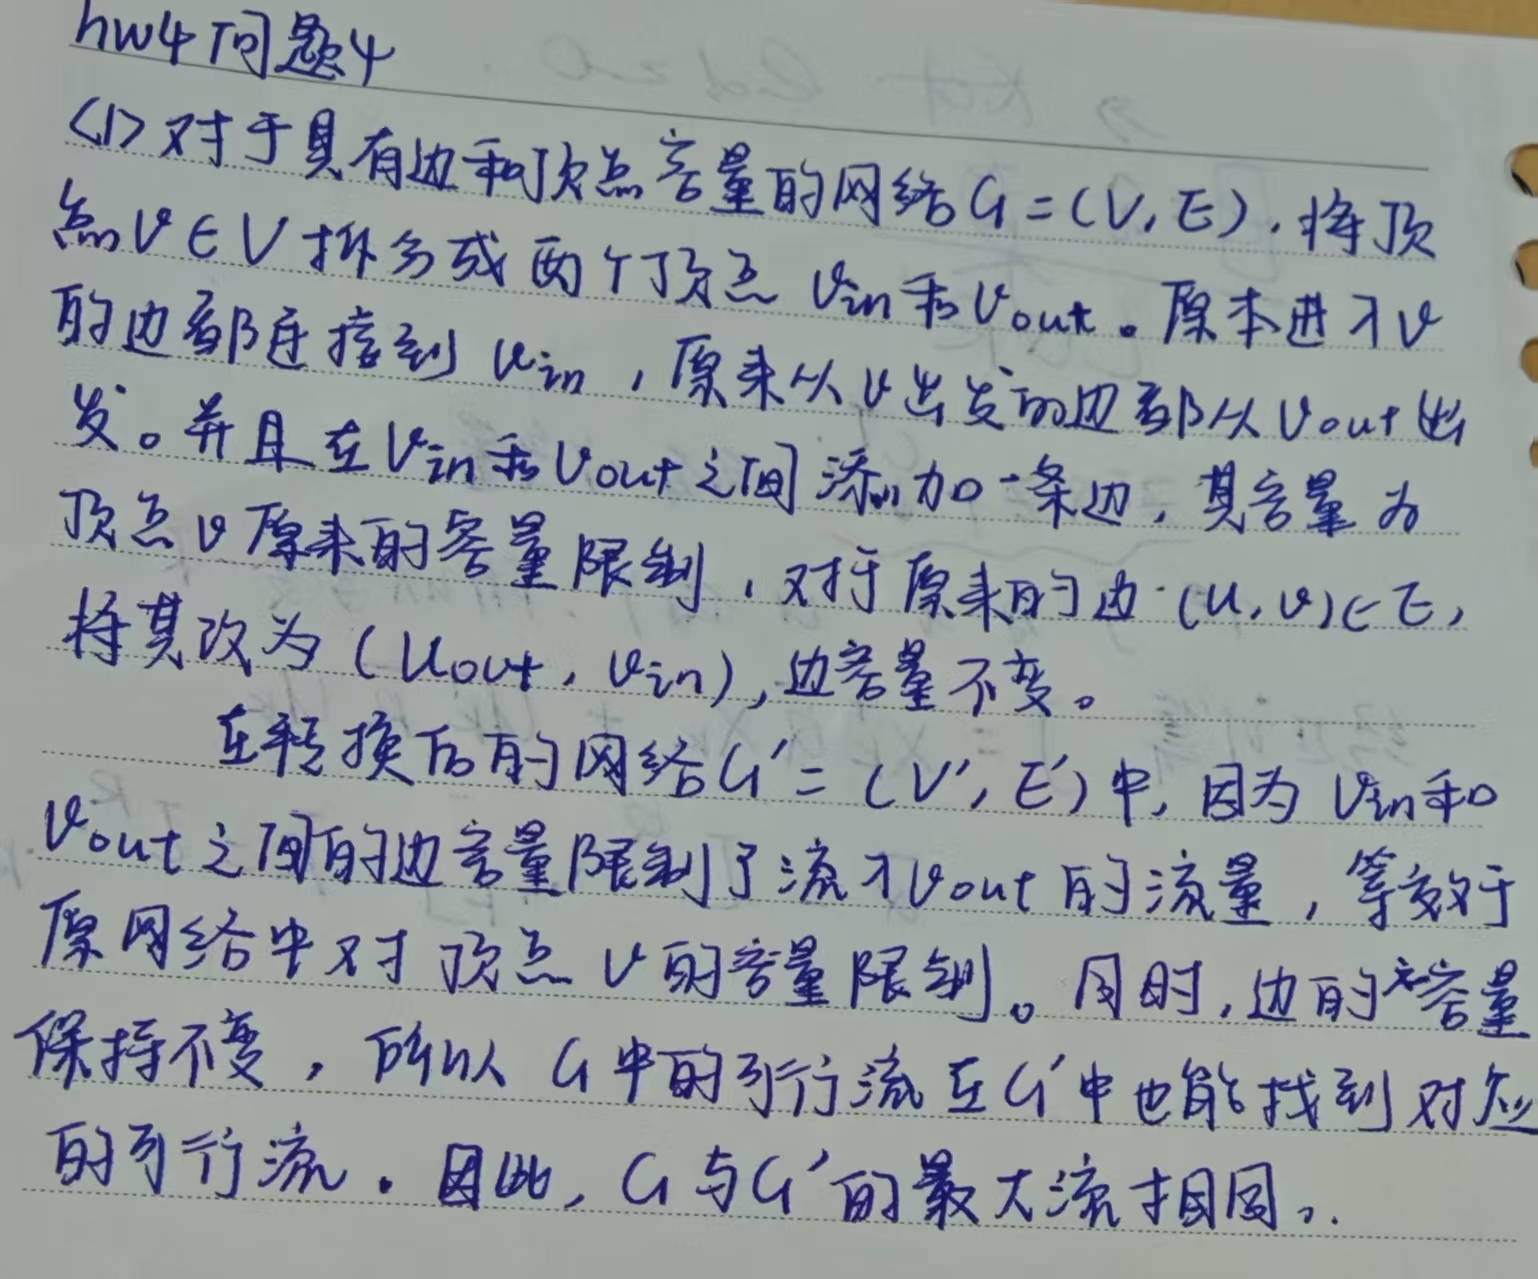 hw4问题4
<1>对于具有边和顶点容量的网络G=(V,E),将顶
点v∈V拆分成两个顶点 vin和vout。原本进入v
的边都连接到vin,原来从v出发的边都从vout出
发。并且在vin和vout之间添加一条边,其容量为
顶点v原来的容量限制,对于原来的边(u,v)∈E,
将其改为(uout,vin),边容量不变。
在转换后的网络G'=(V',E')中,因为vin和
vout之间的边容量限制了流入vout的流量,等效于
原网络中对顶点v的容量限制。同时,边的容量
保持不变,所以G中的可行流在G'中也能找到对应
的可行流.因此,G与G'的最大流相同。